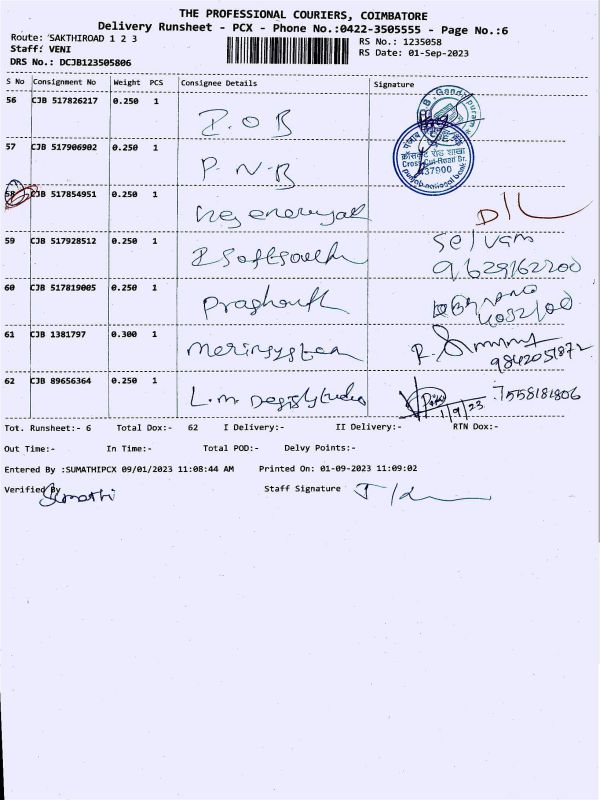 THE PROFESSIONAL COURIERS, COIMBATORE
Delivery Runsheet - PCX - Phone No.:0422-3505555 - Page No.:6
Route: SAKTHIROAD 1 2 3 RS No.: 1235058
Staff: VENI RS Date: 01-Sep-2023
DRS No.: DCJB123505806
S No Consignment No Weight PCS Consignee Details Signature
56 CJB 517826217 0.250 1 I.O.B
57 CJB 517906902 0.250 1 P.N.B
क्रॉसकट रोड शाखा
Cross Cut Road Br.
punjab national bank
58 CJB 517854951 0.250 1 D/L
59 CJB 517928512 0.250 1 Selvam
9629162200
60 CJB 517819005 0.250 1 Prashanth
61 CJB 1381797 0.300 1 Merinsystem R.
9842051872
62 CJB 89656364 0.250 1 L.M. 7558181806
1/9/23
Tot. Runsheet:- 6 Total Dox:- 62 I Delivery:- II Delivery:- RTN Dox:-
Out Time:- In Time:- Total POD:- Delvy Points:-
Entered By :SUMATHIPCX 09/01/2023 11:08:44 AM Printed On: 01-09-2023 11:09:02
Verified By Sumathi Staff Signature